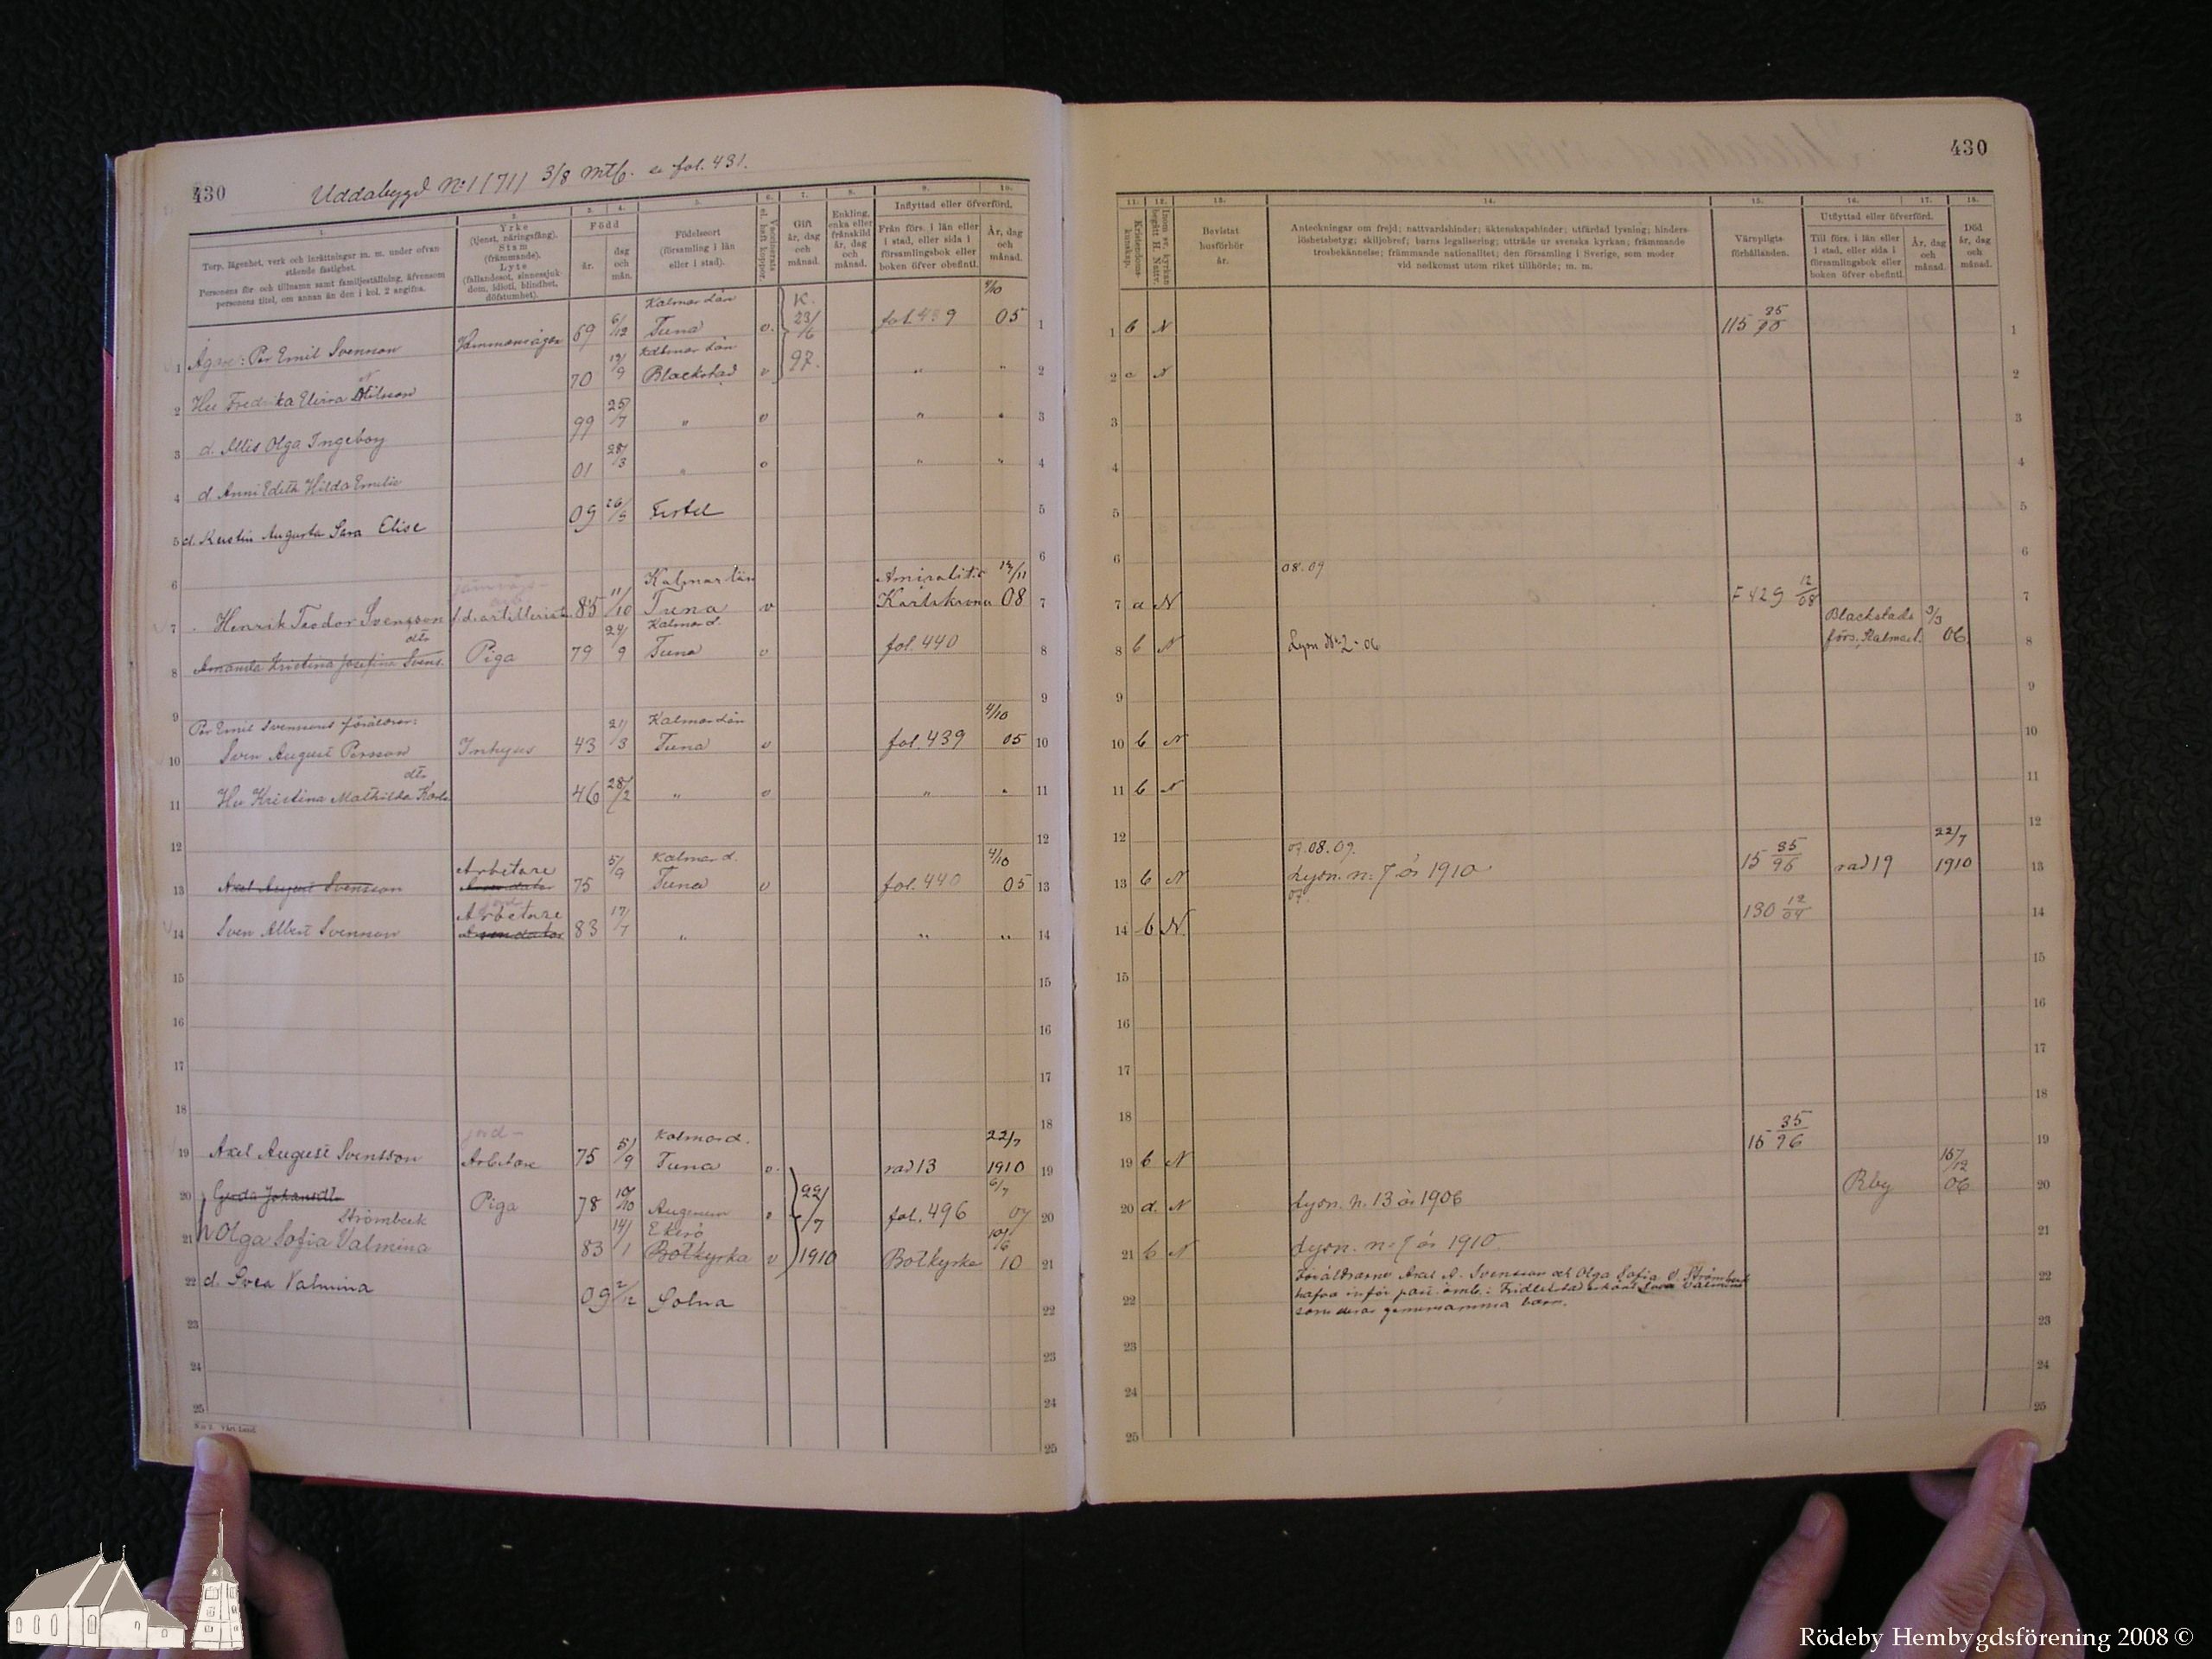 430
Uddabygd No 1 (71) 3/8 mtl. se fol. 431.
1. 2. 3. 4. 5. 6. 7. 8. 9. 10.
Torp, lägenhet, verk och inrättningar m. m. under ofvan
stående fastighet.
Personens för- och tillnamn samt familjeställning, äfvensom
personens titel, om annan än den i kol. 2 angifna.
Yrke
(tjenst, näringsfång).
Stam
(främmande).
Lyte
(fallandesot, sinnessjuk-
dom, idioti, blindhet,
döfstumhet).
Född
år.
dag
och
mån.
Födelseort
(församling i län
eller i stad).
Vaccinerats
el. haft koppor.
Gift
år, dag
och
månad.
Enkling,
enka eller
frånskild
år, dag
och
månad.
Inflyttad eller öfverförd.
Från förs. i län eller
i stad, eller sida i
församlingsbok eller
boken öfver obefintl.
År, dag
och
månad.
1 Ägare: Per Emil Svensson Hemmansägare 69 6/12 Kalmar län Tuna v. K. 23/6 97. fol. 439 4/10 05 1
2 Hu Fredrika Elvira Nilsson 70 19/9 Kalmar län Blackstad v " " 2
3 d. Allis Olga Ingeborg 99 25/7 " v " " 3
4 d. Anni Edith Hilda Emilie 01 28/3 " v " " 4
5 d. Kerstin Augusta Sara Elise 09 26/5 Fistel 5
6 6
7 Henrik Teodor Svensson f.d. artillerist 85 11/10 Kalmar län Tuna v Amiralit.s Karlskrona 13/11 08 7
8 Amanda Kristina Josefina Svens. dtr Piga 79 24/9 Kalmar l. Tuna v fol. 440 8
9 Per Emil Svenssons föräldrar: 9
10 Sven August Persson Inhyses 43 21/3 Kalmar län Tuna v fol. 439 4/10 05 10
11 Hu Kristina Mathilda Karls dtr 46 28/2 " v " " 11
12 12
13 Axel August Svensson Arbetare Arrendator 75 5/9 Kalmar l. Tuna v fol. 440 4/10 05 13
14 Sven Albert Svensson jord Arbetare Arrendator 83 17/7 " " " 14
15 15
16 16
17 17
18 18
19 Axel August Svensson jord- Arbetare 75 5/9 Kalmar l. Tuna v. rad 13 22/7 1910 19
20 Gerda Johansdtr Piga 78 10/10 Augerum v 22/7 fol. 496 6/7 07 20
21 H Olga Sofia Valmina Strömbeck 83 14/1 Ekerö Botkyrka v 1910 Botkyrka 10/6 10 21
22 d. Svea Valmina 09 2/12 Solna 22
23 23
24 24
25 25
430
11. 12. 13. 14. 15. 16. 17. 18.
Kristendoms-
kunskap.
Inom sv. kyrkan
begått H. Nattv.
Bevistat
husförhör
år.
Anteckningar om frejd; nattvardshinder; äktenskapshinder; utfärdad lysning; hinders-
löshetsbetyg; skiljobref; barns legalisering; utträde ur svenska kyrkan; främmande
trosbekännelse; främmande nationalitet; den församling i Sverige, som moder
vid nedkomst utom riket tillhörde; m. m.
Värnpligts-
förhållanden.
Utflyttad eller öfverförd.
Till förs. i län eller
i stad, eller sida i
församlingsbok eller
boken öfver obefintl.
År, dag
och
månad.
Död
år, dag
och
månad.
1 b N 115 35/90 1
2 c N 2
3 3
4 4
5 5
6 6
7 a N 08.09 F 429 12/08 7
8 b N Lysn No 2 - 06 Blackstads förs. Kalmar l. 9/3 06 8
9 9
10 b N 10
11 b N 11
12 12
13 b N 07.08.09. Lysn. n: 7 år 1910 15 35/96 rad 19 22/7 1910 13
14 b N. 07. 130 12/04 14
15 15
16 16
17 17
18 18
19 b N 15 35/96 19
20 d. N Lysn. n. 13 år 1906 Rby 16/12 06 20
21 b N Lysn. n: 7 år 1910 21
22 Föräldrarne Axel A. Svensson och Olga Sofia V. Strömbeck 22
hafva inför past. emb. i Fridlefstad erkänt Svea Valmina
som deras gemensamma barn.
23 23
24 24
25 25
Rödeby Hembygdsförening 2008 ©